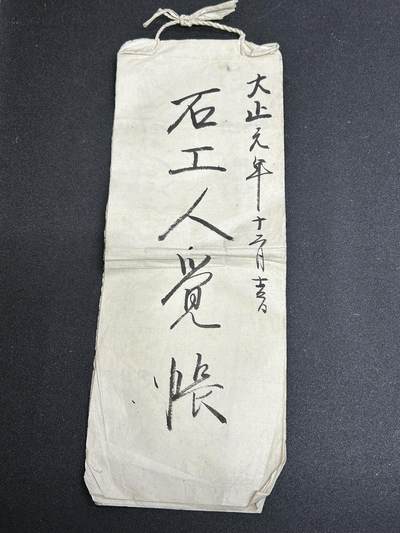 大正元年十二月吉日
石工人覚帳